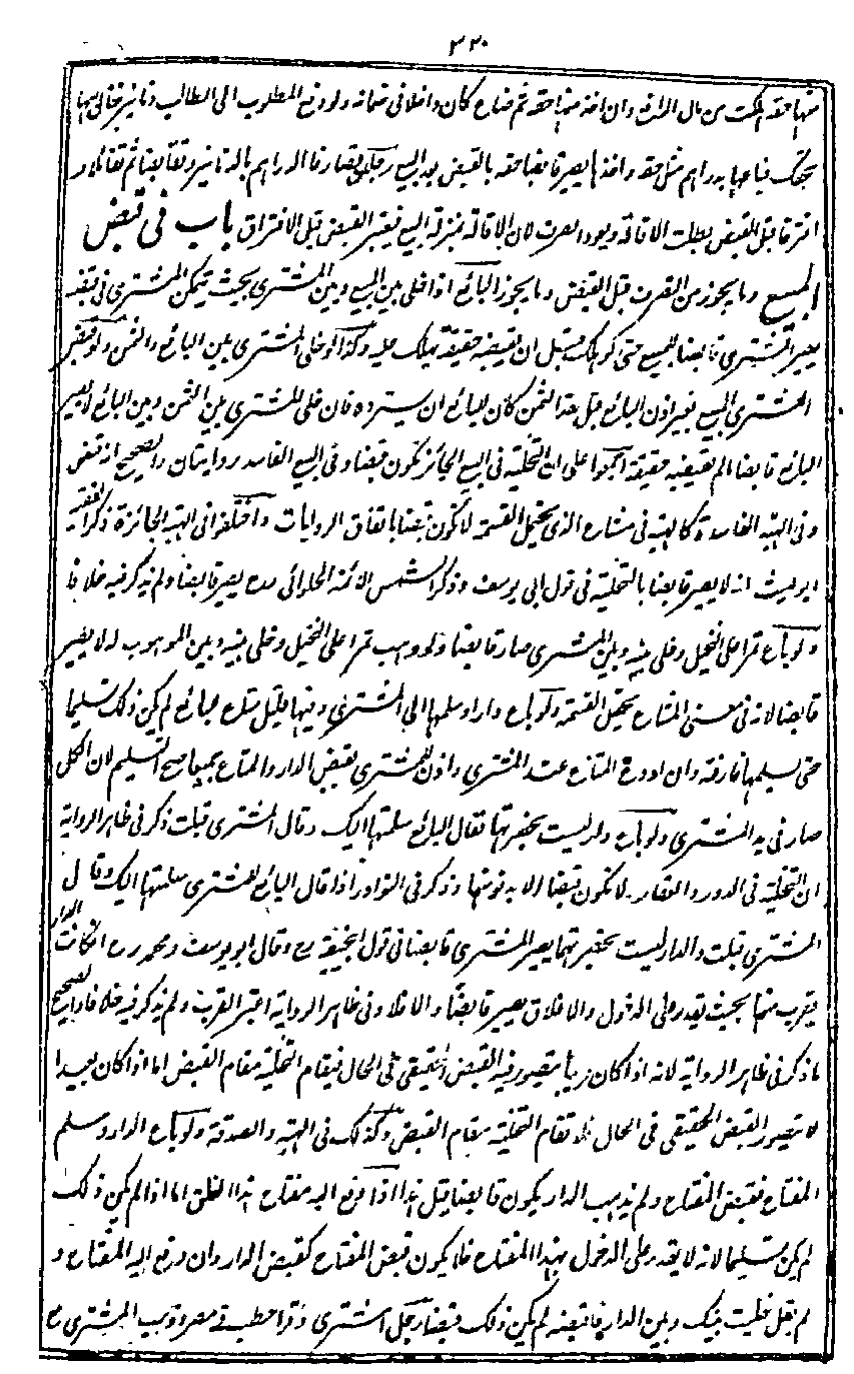 ٢٢٠
منها حقه هلكت من مال الدافع وان اخذ منها حقه ثم ضاع كان داخلا فى ضمانه ولو دفع المطلوب الى الطالب دنانير فقال بعها
بحقك فباعها بدراهم مثل حقه واخذها يصير قابضا حقه بالقبض بعد البيع رجلان تصارفا الدراهم بالدنانير وتقابضا ثم تقايلا و
افترقا قبل القبض بطلت الاقالة ويعود الصرف لان الاقالة بمنزلة البيع فيعتبر القبض قبل الافتراق باب فى قبض
المبيع وما يجوز من التصرف قبل القبض وما يجوز البائع اذا خلى بين المبيع وبين المشترى بحيث يتمكن المشترى فى قبضه
يصير المشترى قابضا للمبيع حتى لو هلك قبل ان يقبضه حقيقة يهلك عليه وكذا لو خلى المشترى بين البائع والثمن ولو قبض
المشترى المبيع بغير اذن البائع قبل نقد الثمن كان للبائع ان يسترده فان خلى المشترى بين الثمن وبين البائع لا يصير
البائع قابضا ما لم يقبضه حقيقة اجمعوا على ان التخلية فى البيع الجائز تكون قبضا وفى البيع الفاسد روايتان والصحيح انه قبض
وفى الهبة الفاسدة كالهبة فى مشاع الذى يحتمل القسمة لا تكون قبضا باتفاق الروايات واختلفوا فى الهبة الجائزة ذكر الفقيه
ابو ليث انه لا يصير قابضا بالتخلية فى قول ابى يوسف وذكر الشمس الائمة الحلوائى رح يصير قابضا ولم يذكر فيه خلافا
ولو باع تمرا على النخيل وخلى بينه وبين المشترى صار قابضا ولو وهب تمرا على النخيل وخلى بينه وبين الموهوب له لا يصير
قابضا لانه فى معنى المشاع يحتمل القسمة ولو باع دارا وسلمها الى المشترى وفيها قليل متاع للبائع لم يكن ذلك تسليما
حتى يسلمها فارغة وان اودع المتاع عند المشترى واذن للمشترى بقبض الدار والمتاع جميعا صح التسليم لان الكل
صار فى يد المشترى ولو باع دارا ليست بحضرتهما فقال البائع سلمتها اليك وقال المشترى قبلت ذكر فى ظاهر الرواية
ان التخلية فى الدور والعقار لا تكون قبضا الا بدنو منها وذكر فى النوادر اذا قال البائع للمشترى سلمتها اليك وقال
المشترى قبلت والدار ليست بحضرتهما يصير المشترى قابضا فى قول ابيحنيفة رح وقال ابو يوسف ومحمد رح ان كانت الدار
بقرب منها بحيث يقدر على الدخول والاغلاق يصير قابضا والا فلا وفى ظاهر الرواية اعتبر القرب ولم يذكر فيه خلافا والصحيح
ما ذكر فى ظاهر الرواية لانه اذا كان قريبا يتصور فيه القبض الحقيقى فى الحال فيقام التخلية مقام القبض اما اذا كان بعيدا
لا يتصور القبض الحقيقى فى الحال فلا تقام التخلية مقام القبض وكذلك فى الهبة والصدقة ولو باع الدار وسلم
المفتاح فقبض المفتاح ولم يذهب الدار يكون قابضا قيل هذا اذا دفع اليه مفتاح هذا الغلق اما اذا لم يكن ذلك
لم يكن تسليما لانه لا يقدر على الدخول بهذا المفتاح فلا يكون قبض المفتاح كقبض الدار وان دفع اليه المفتاح و
لم يقل خليت بينك وبين الدار فاقبضه لم يكن ذلك قبضا رجل اشترى وقر احطب فى مصر